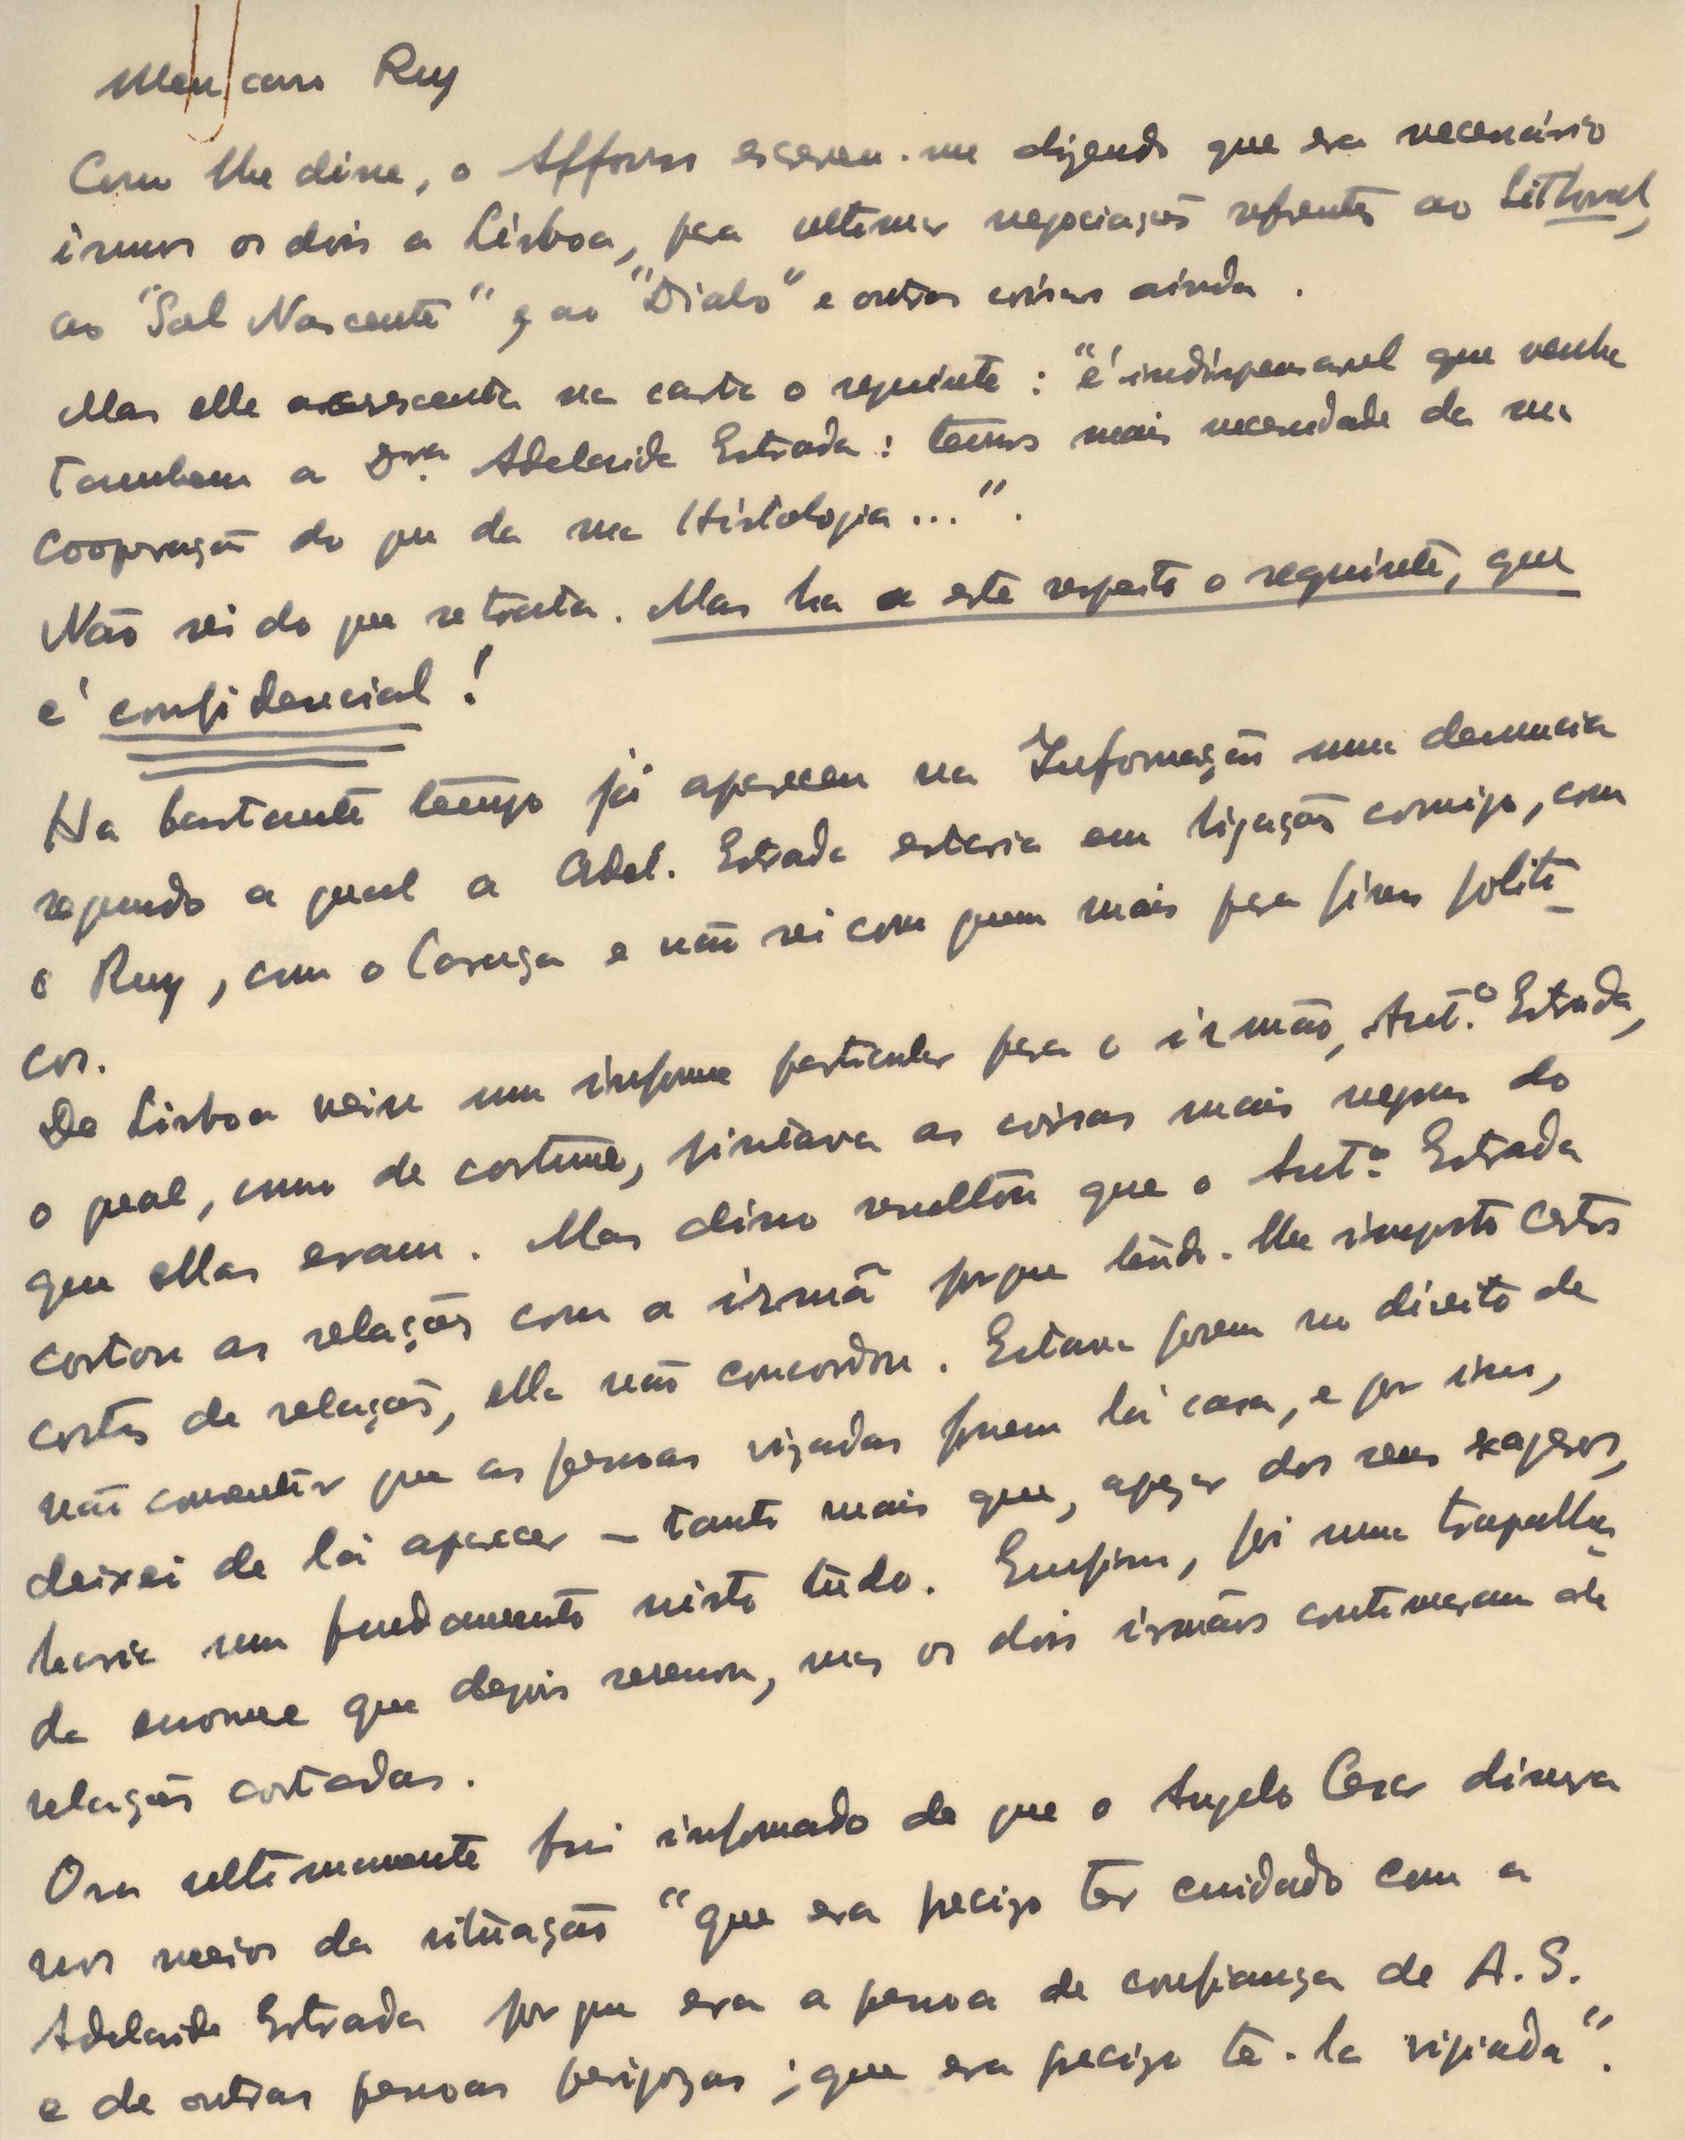 Meu caro Ruy
Como lhe disse, o Affonso escreveu-me dizendo que era necessário
irmos os dois a Lisboa, para ultimar negociações referentes ao Litoral,
ao "Sol Nascente" e ao "Diabo" e outras coisas ainda.
Mas elle acrescenta na carta o seguinte: "é indispensavel que venha
tambem a Drª. Adelaide Estrada: temos mais necessidade da sua
cooperação do que da sua Histologia...".
Não sei do que se trata. Mas ha a este respeito o seguinte, que
é confidencial!
Ha bastante tempo já apareceu na Informação uma denuncia
segundo a qual a Adel. Estrada estaria em ligação comigo, com
o Ruy, com o Coruga e não sei com quem mais para fins politi-
cos.
De Lisboa veiu um informe particular para o irmão, Antº. Estrada,
o qual, como de costume, pintava as coisas mais negras do
que ellas eram. Mas disso resultou que o Antº. Estrada
cortou as relações com a irmã porque tendo-lhe imposto certos
cortes de relações, ella não concordou. Estava porem no direito de
não consentir que as pessoas visadas fossem lá casa, e por isso,
deixei de lá aparecer – tanto mais que, apezar dos seus exageros,
havia um fundamento nisto tudo. Emfim, foi uma trapalha-
da enorme que depois serenou, mas os dois irmãos continuaram de
relações cortadas.
Ora ultimamente fui informado de que o Angelo Cesar dissera
nos meios da situação "que era precizo ter cuidado com a
Adelaide Estrada porque era a pessoa de confiança de A. S.
e de outras pessoas perigozas; que era precizo tê-la vigiada".